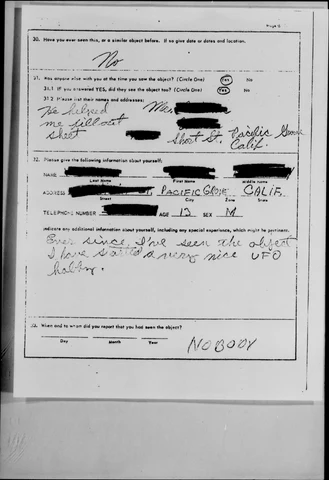 Page 6
30. Have you ever seen this, or a similar object before. If so give date or dates and location.
No
31. Was anyone else with you at the time you saw the object? (Circle One) Yes No
31.1 If you answered YES, did they see the object too? (Circle One) Yes No
31.2 Please list their names and addresses:
He helped
me fill out
sheet
Short St. Pacific Grove
Calif.
32. Please give the following information about yourself:
NAME
Last Name First Name Middle Name
ADDRESS St. PACIFIC GROVE CALIF.
Street City Zone State
TELEPHONE NUMBER AGE 13 SEX M
Indicate any additional information about yourself, including any special experience, which might be pertinent.
Ever since, I've seen the object
I have started a very nice UFO
hobby.
33. When and to whom did you report that you had seen the object?
NOBODY
Day Month Year